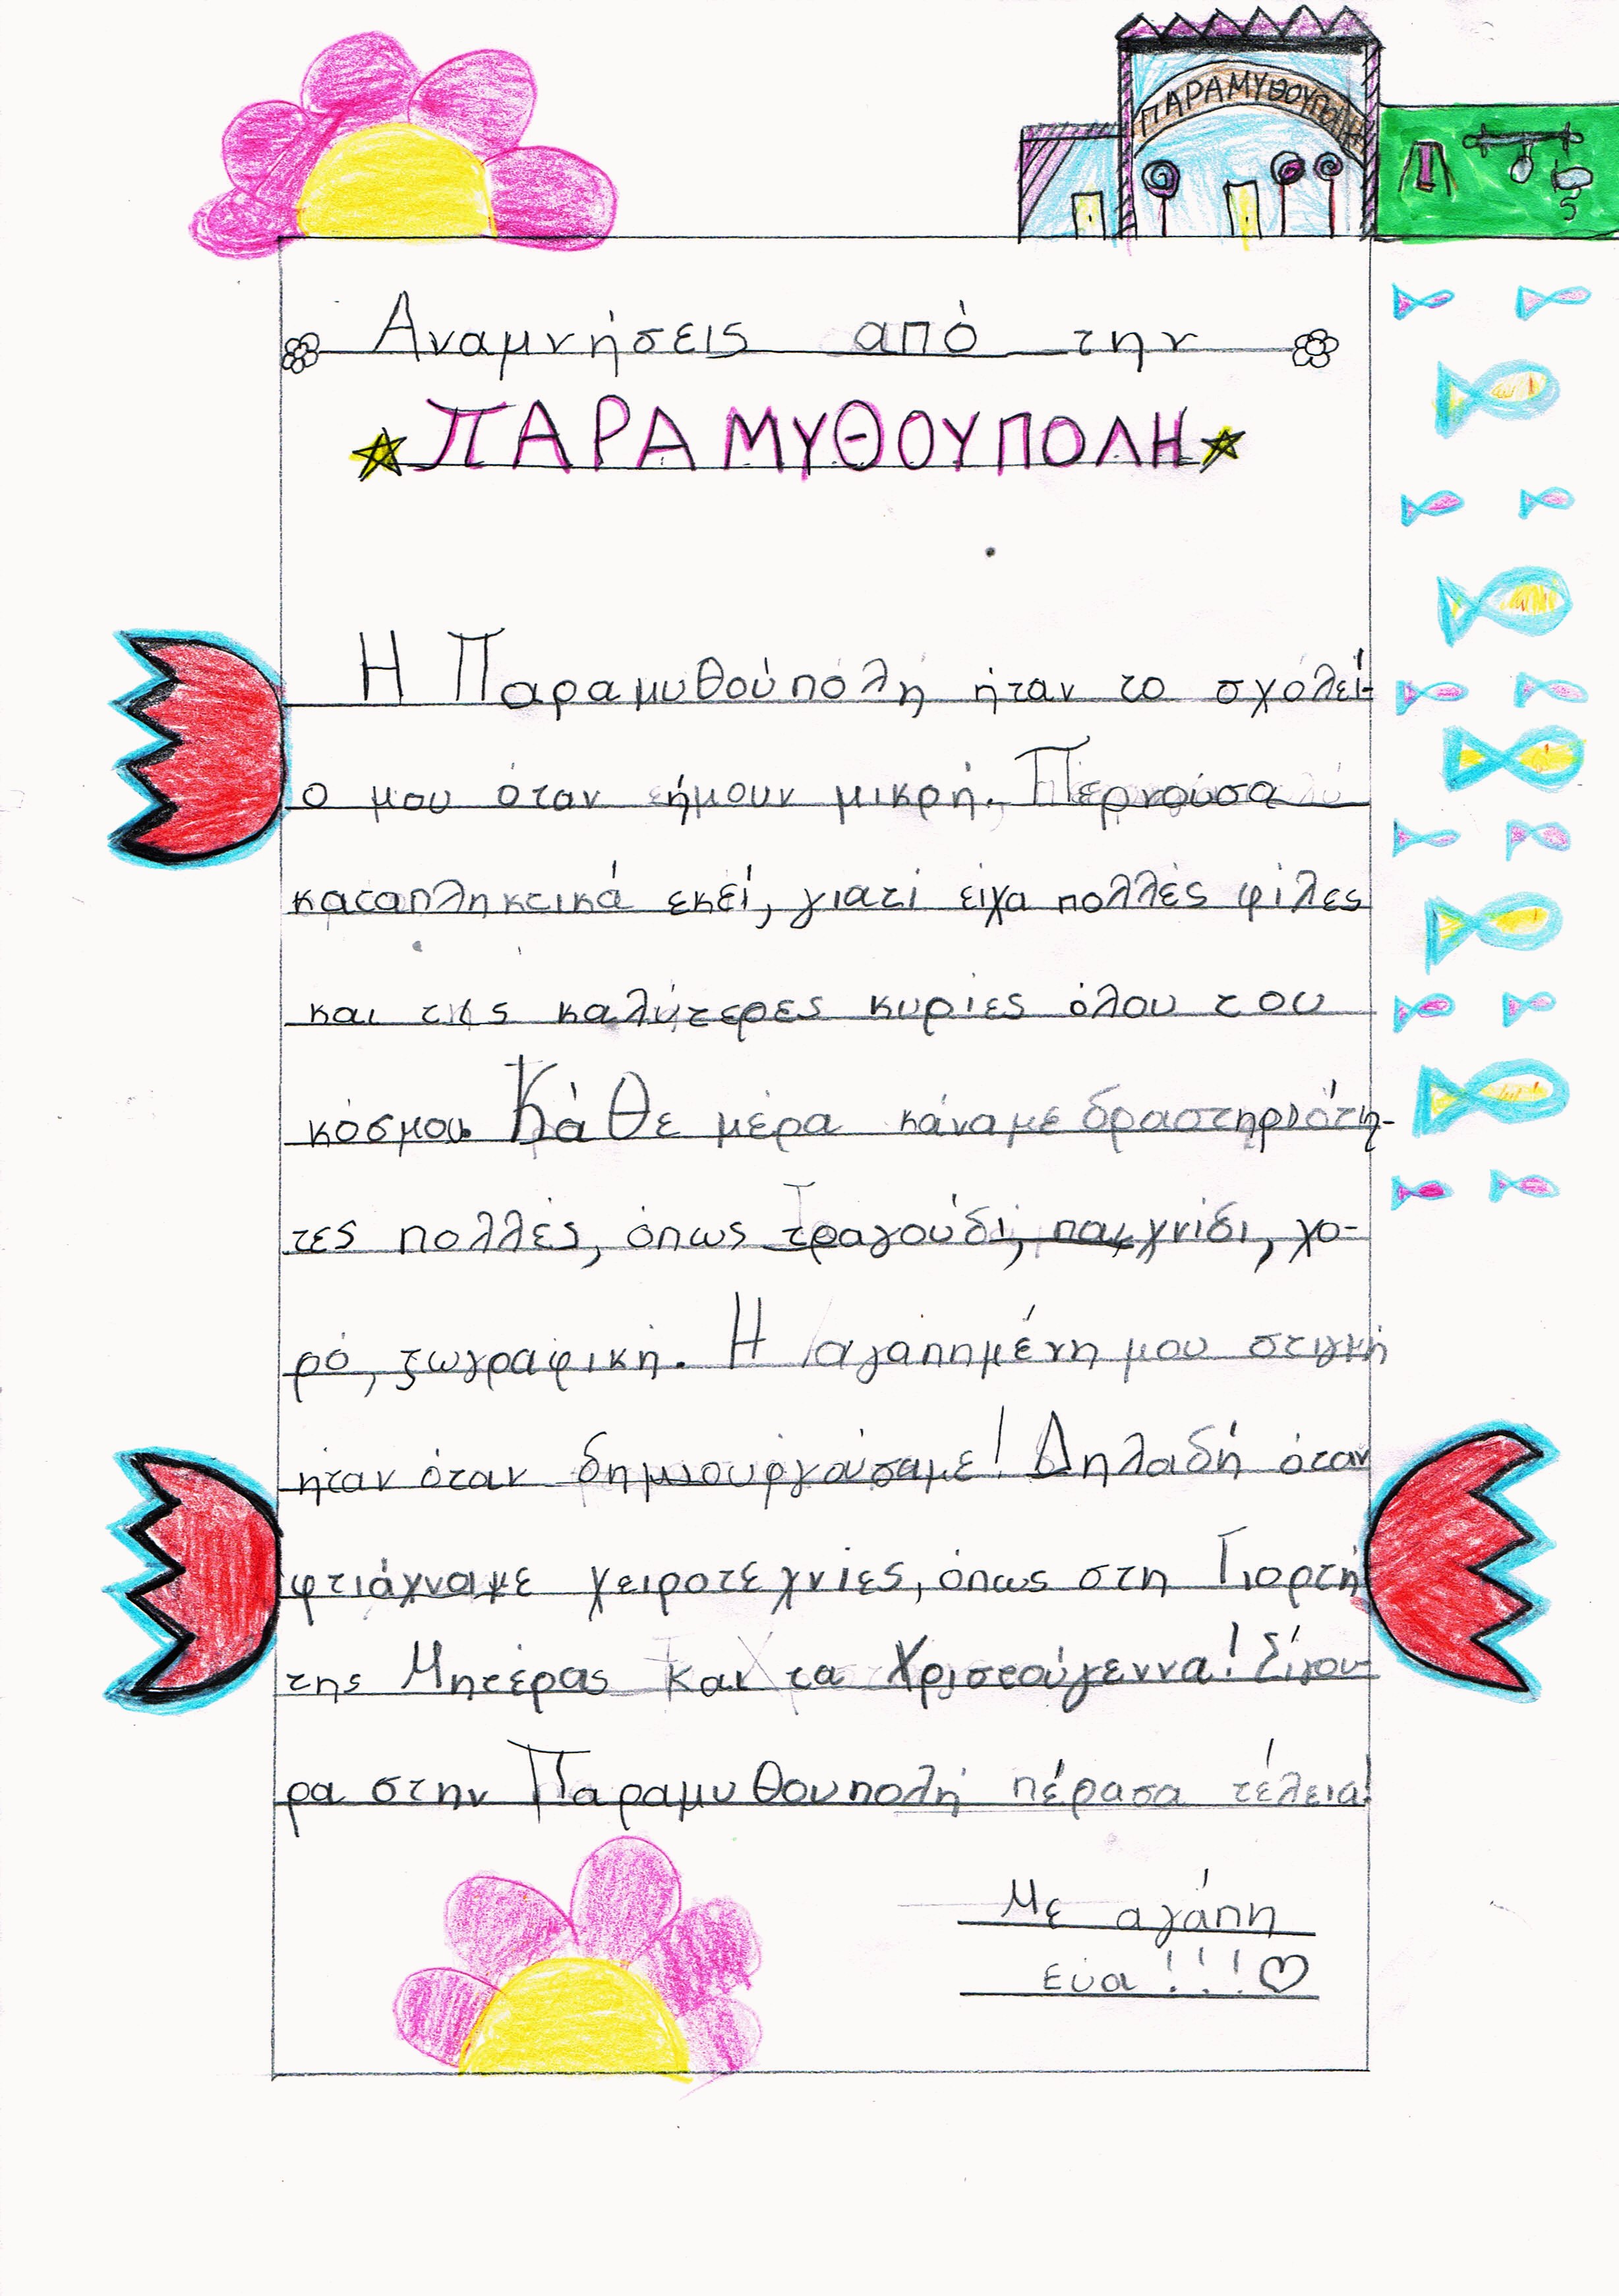 ΠΑΡΑΜΥΘΟΥΠΟΛΗ
Αναμνήσεις από την
ΠΑΡΑΜΥΘΟΥΠΟΛΗ
Η Παραμυθούπόλή ήταν το σχόλεί-
ο μου όταν ήμουν μικρή. Περνούσα
καταπληκτικά εκεί, γιατί είχα πολλές φίλες
και τις καλύτερες κυρίες όλου του
κόσμου. Κάθε μέρα κάναμε δραστηριότη-
τες πολλές, όπως τραγούδι, παιχνίδι, χο-
ρό, ζωγραφική. Η αγαπημένη μου στιγμή
ήταν όταν δημιουργούσαμε! Δηλαδή όταν
φτιάχναμε χειροτεχνίες, όπως στη Γιορτή
της Μητέρας και τα Χριστούγεννα! Σίγου-
ρα στην Παραμυθουπολή πέρασα τέλεια!
Με αγάπη
εύα!!!